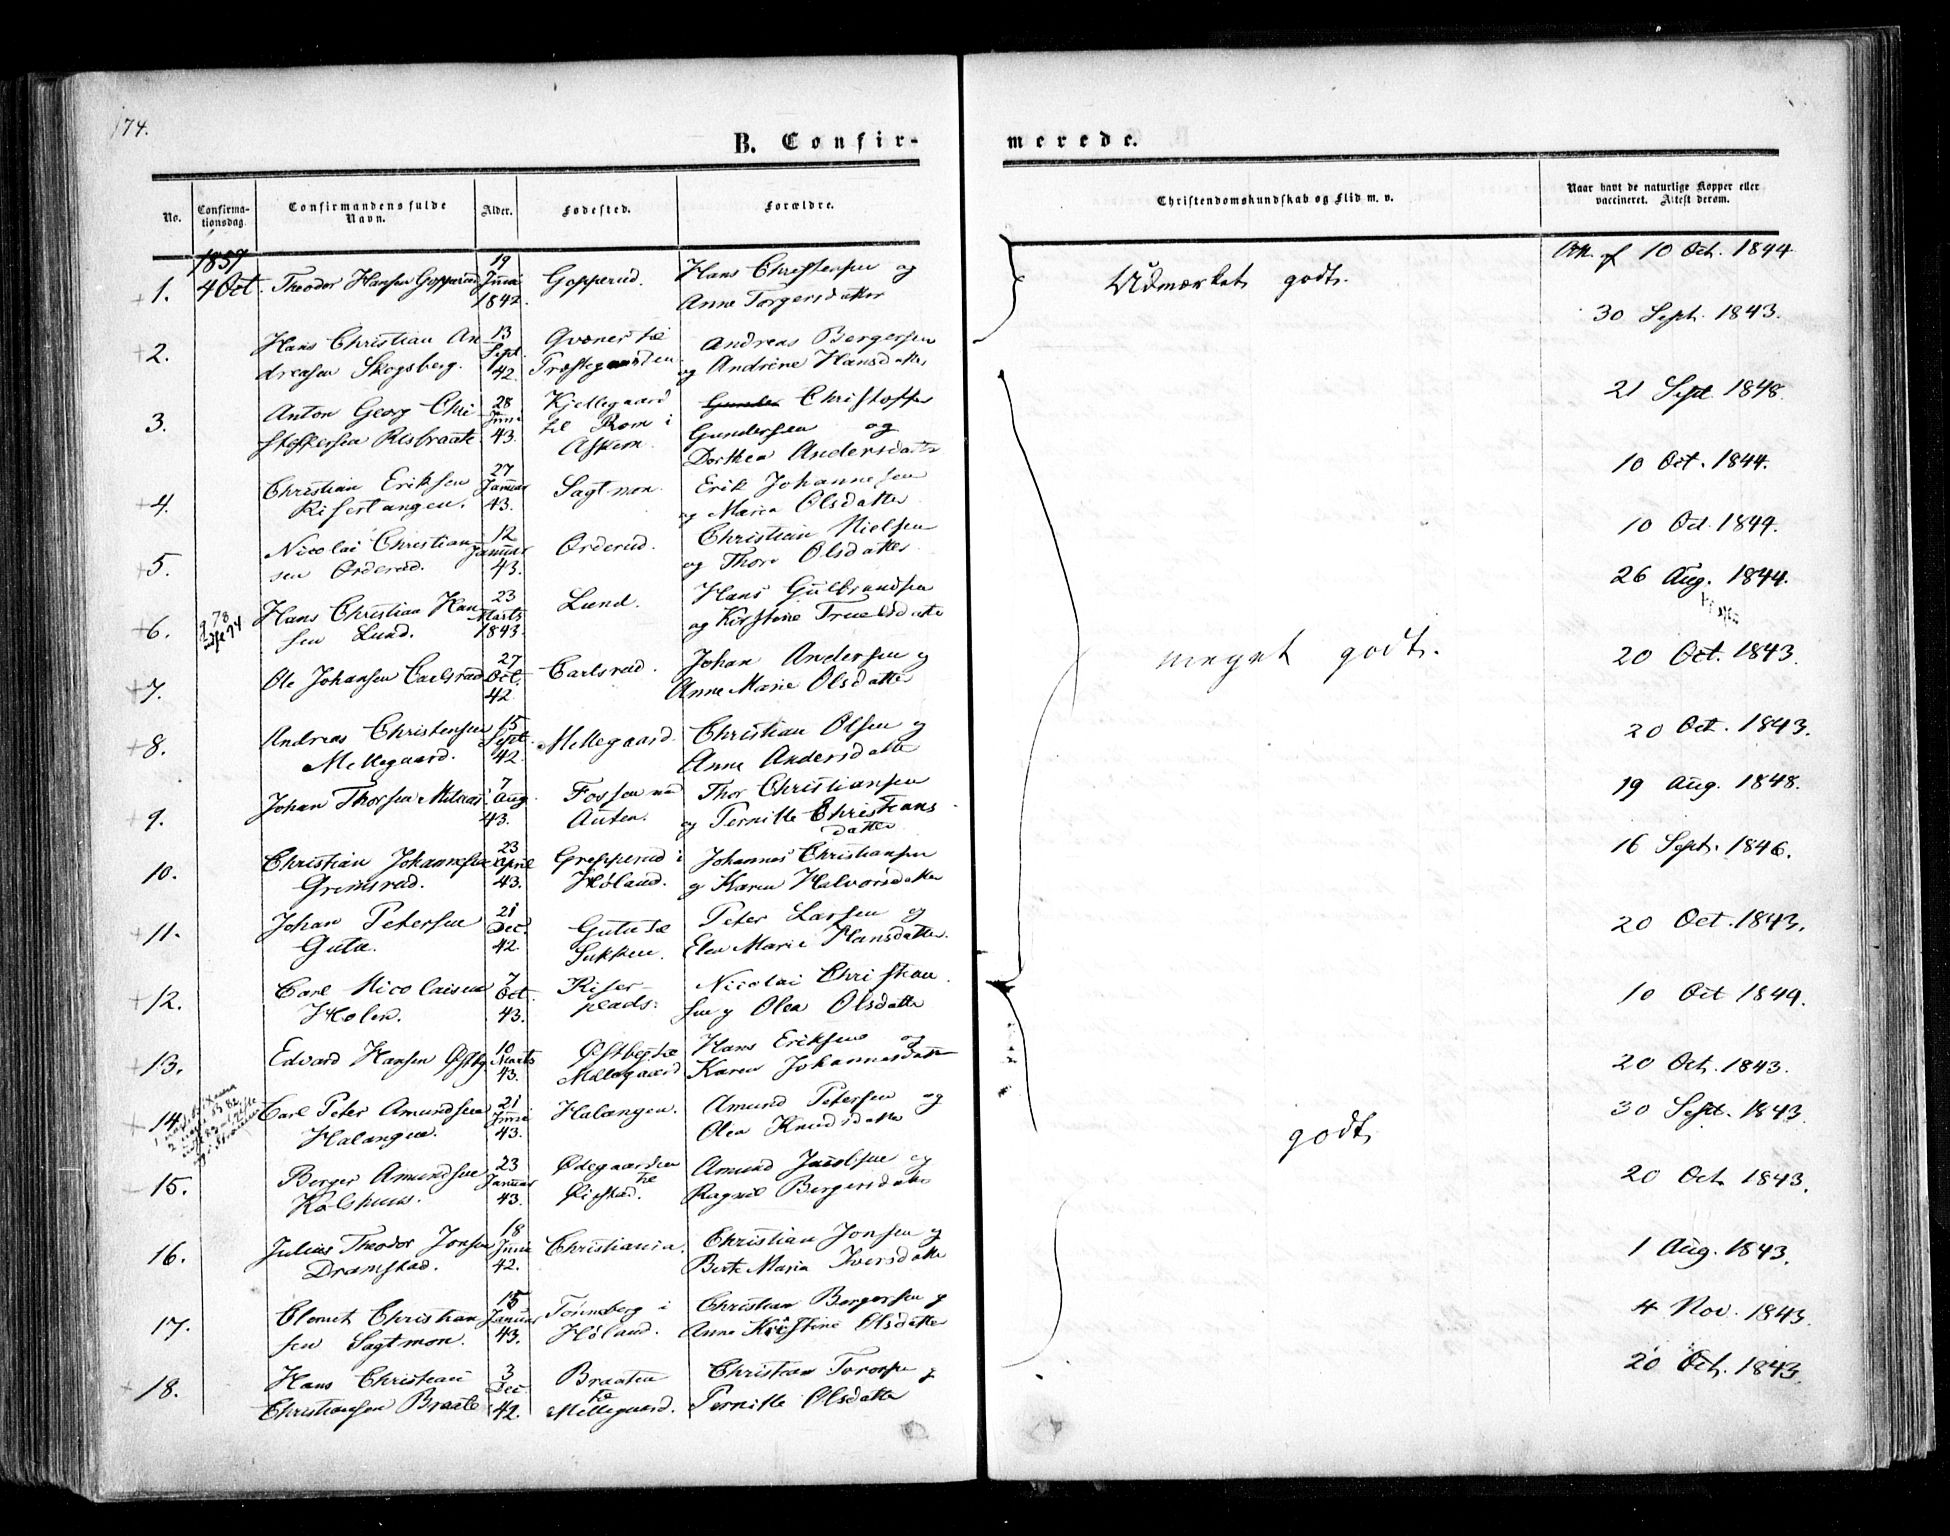 174.
B. Confir-
merede.
No.
Confirma-
tionsdag.
Confirmandens fulde
Navn.
Alder.
Fødested.
Forældre.
Christendomskundskab og Flid m. v.
Naar havt de naturlige Kopper eller
vaccineret. Attest derom.
1857
1. 4 Oct. Theodor Hansen Gopperud 19 Juni 1842 Gopperud. Hans Christensen og
Anne Torgersdatter
Udmærket godt.
10 Oct. 1844
2. Hans Christian An 13 Sept. 42. Andreas Bergersen
dreasen Skogsberg. Præstegaarden og Andrine Hansdatter
30 Sept. 1843.
3. Anton Georg Chri 28 Juni 43. Kjellegaard Gunder Christoffer
stoffersen Risbraate til Rom i Gundersen og
Askim. Dorthea Andersdatter
21 Sept 1848.
4. Christian Eriksen 27 Januar 43. Sagtmon. Erik Johannesen
Risertangen. og Maria Olsdatter
10 Oct. 1844.
5. Nicolai Christian 12 Januar 43. Orderud. Christian Nielsen
sen Orderud. og Thore Olsdatter
10 Oct. 1844.
6. Hans Christian Han 23 Marts 1843. Lund. Hans Gulbrandsen
sen Lund. og Kirstine Truelsdatter
26 Aug. 1844.
7. Ole Johansen Carlsrud 27 Oct. 42 Carlsrud. Johan Andersen og
Anne Marie Olsdatter
meget godt.
20 Oct. 1843.
8. Andreas Christensen 15 Sept. 42. Mellegaard. Christian Olsen og
Mellegaard. Anne Andersdatter
20 Oct. 1843.
9. Johan Thorsen 7 Aug. 43. Fossen Thor Christiansen
og Pernille Christians
datter
19 Aug. 1848.
10. Christian Johannesen 23 April 43. i Johannes Christiansen
Grimsrud. Høland. og Karen Halvorsdatter
16 Sept. 1846.
11. Johan Petersen 21 Dec. 42. Peter Larsen og
Elen Marie Hansdatter.
20 Oct. 1843.
12. Carl Nicolaisen 7 Oct. 43. Riser- Nicolai Christian
Holen. plads. sen og Olea Olsdatter
10 Oct 1844.
13. Edvard Hansen Østby 10 Marts 43. Østby Hans Eriksen og
Mellegaard Karen Johannesdatter
20 Oct. 1843.
14. Carl Peter Amundsen 21 Juni 43. Halangen. Amund Petersen og
Halangen. Olea Knudsdatter
godt
30 Sept. 1843.
15. Berger Amundsen 23 Januar 43. Ødegaarden Amund Jacobsen og
Kolshuus. Ragnil Bergersdatter
20 Oct. 1843.
16. Julius Theodor Jonsen 18 Juni 42. Christiania. Christian Jonsen og
Dramstad. Berte Maria Iversdatter
1 Aug. 1843.
17. Clemet Christian 15 Januar 43. i Christian Bergersen og
sen Sagtmon. Høland. Anne Kirstine Olsdatter
4 Nov. 1843.
18. Hans Christian 3 Dec. 42. Braaten Christian
Christiansen Braate Mellegaard. Pernille Olsdatter
20 Oct. 1843.